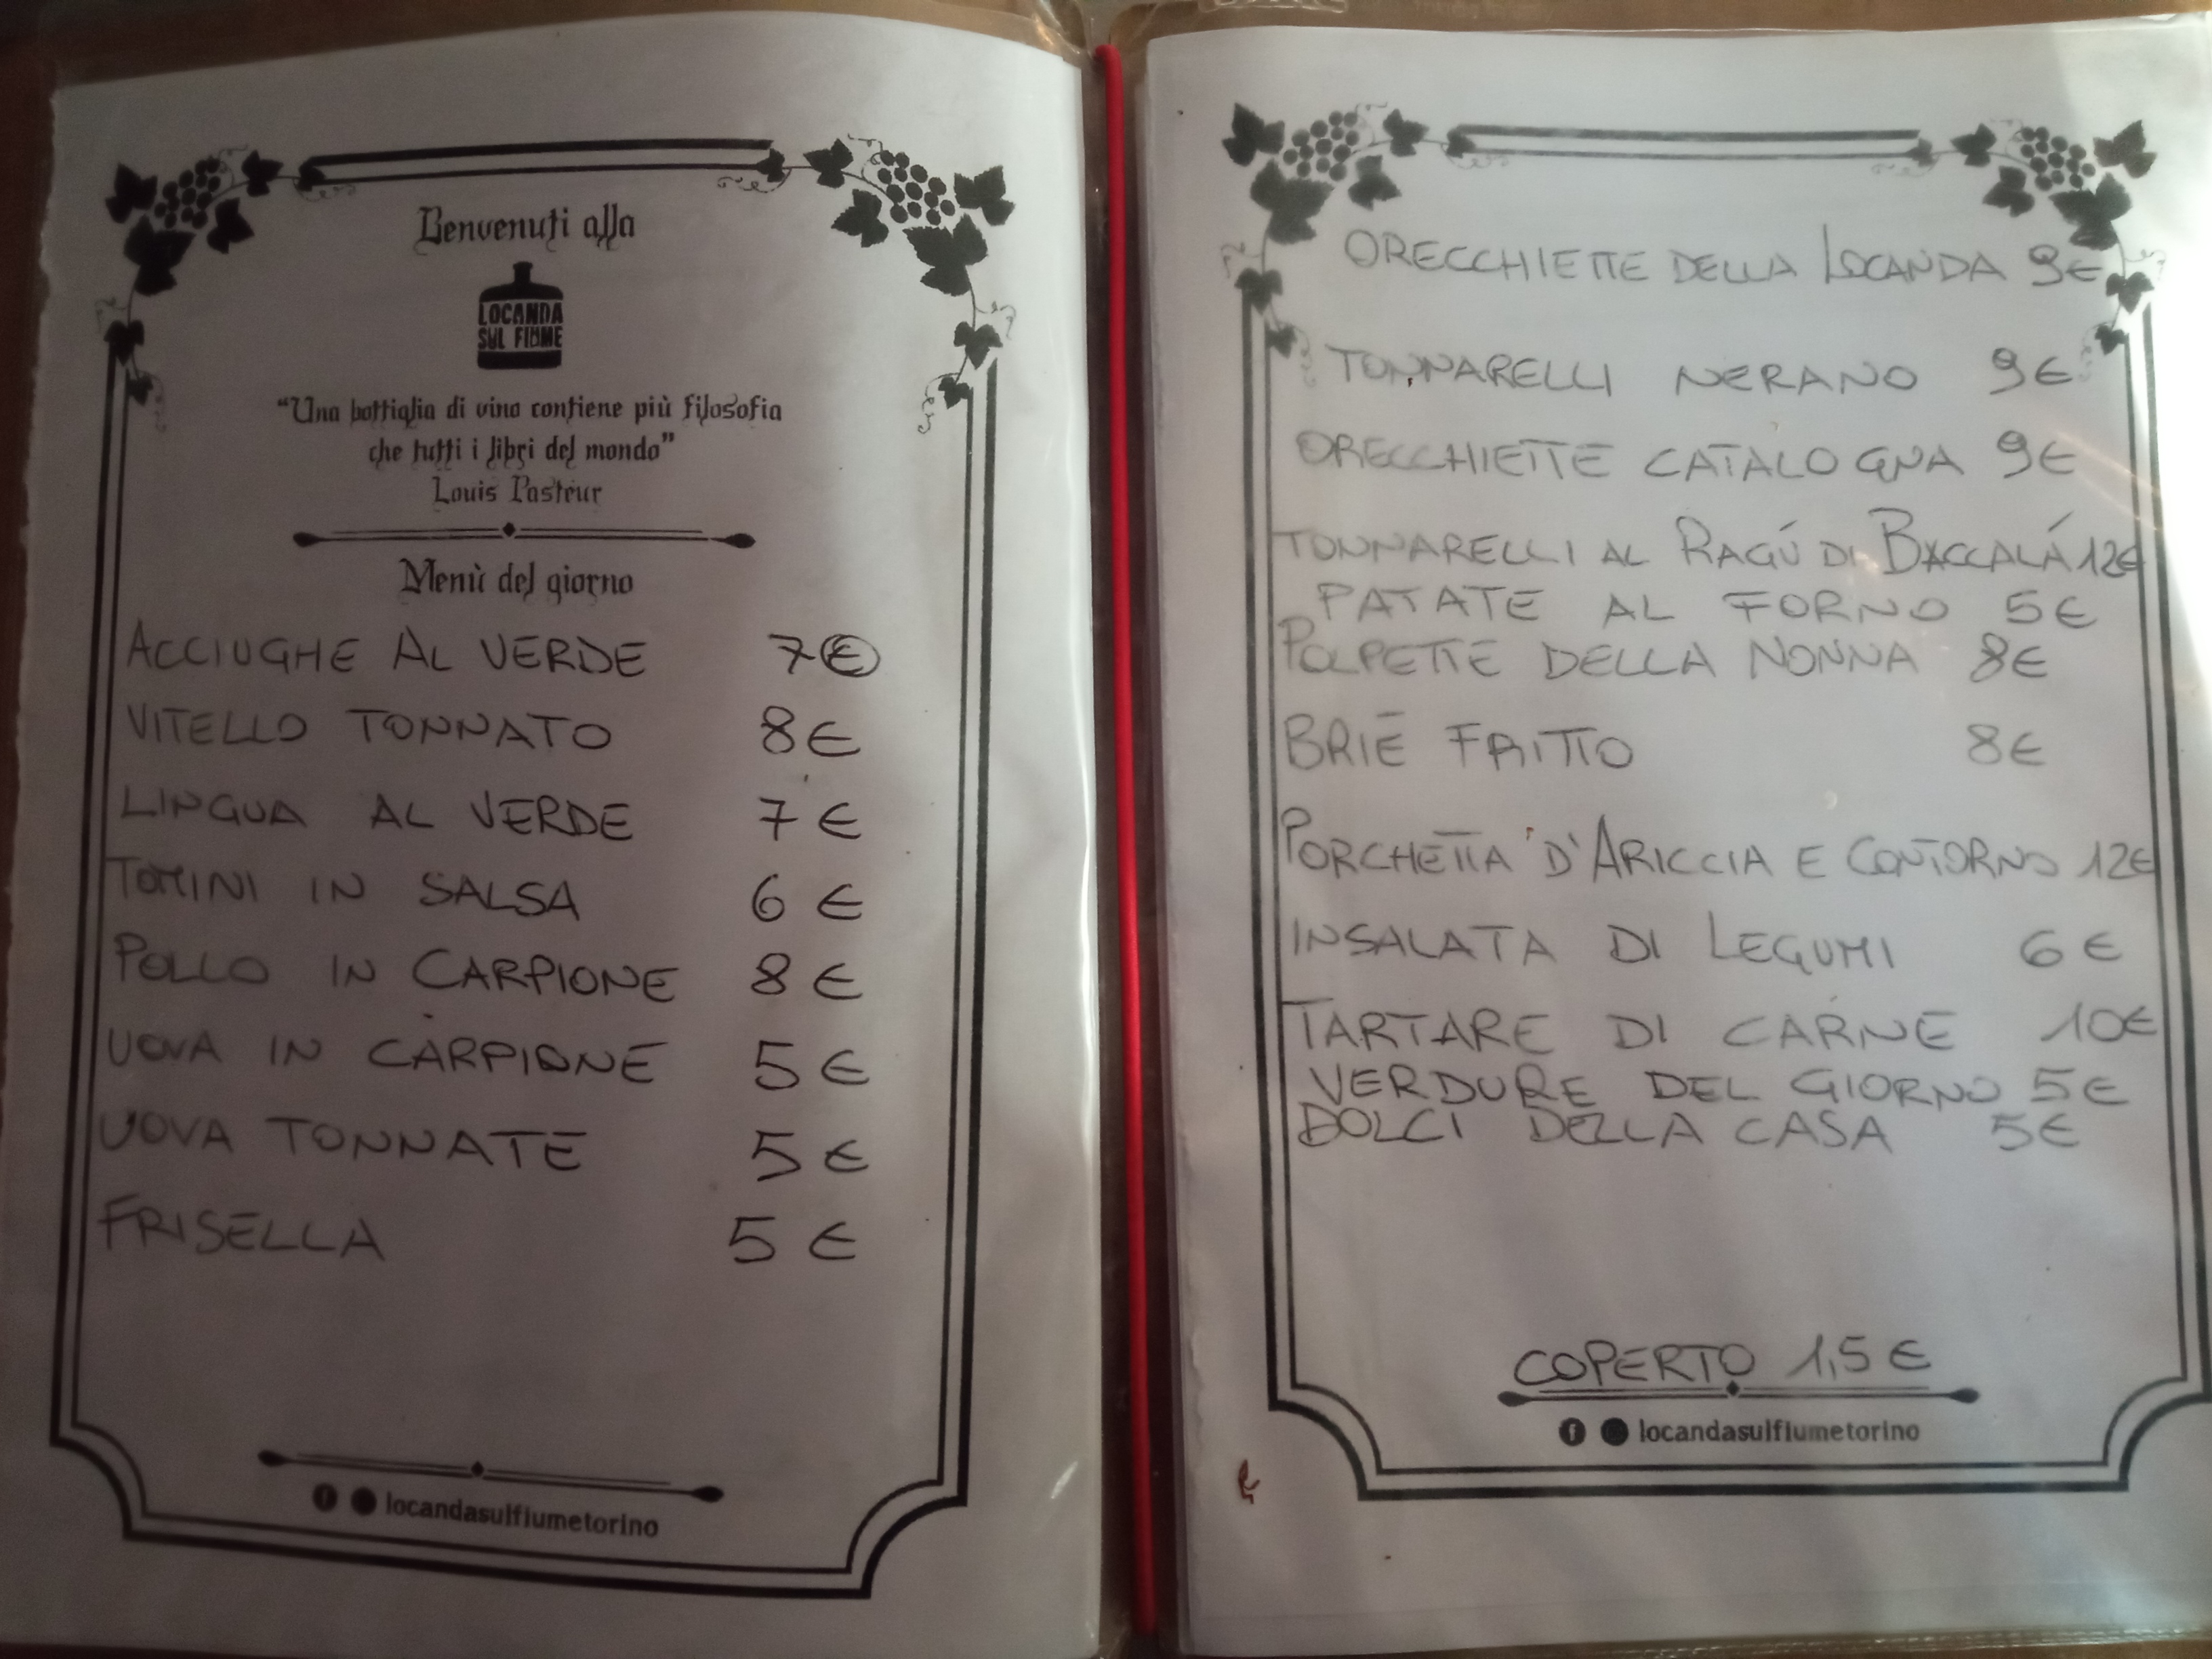 Benvenuti alla
LOCANDA
SUL FIUME
“Una bottiglia di vino contiene più filosofia
che tutti i libri del mondo”
Louis Pasteur
Menù del giorno
ACCIUGHE AL VERDE 7€
VITELLO TONNATO 8€
LINGUA AL VERDE 7€
TOMINI IN SALSA 6€
POLLO IN CARPIONE 8€
UOVA IN CARPIONE 5€
UOVA TONNATE 5€
FRISELLA 5€
locandasulfiumetorino
ORECCHIETTE DELLA LOCANDA 9€
TONNARELLI NERANO 9€
ORECCHIETTE CATALOGNA 9€
TONNARELLI AL RAGÚ DI BACCALÁ 12€
PATATE AL FORNO 5€
POLPETTE DELLA NONNA 8€
BRIE FRITTO 8€
PORCHETTA D'ARICCIA E CONTORNO 12€
INSALATA DI LEGUMI 6€
TARTARE DI CARNE 10€
VERDURE DEL GIORNO 5€
DOLCI DELLA CASA 5€
COPERTO 1,5€
locandasulfiumetorino